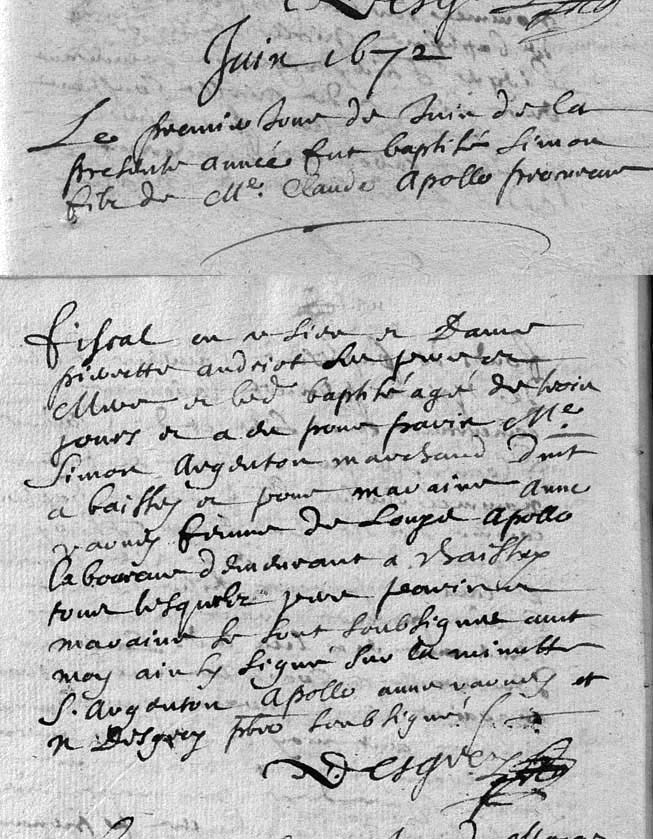 Juin 1672
Le premier Jour de Juin de la
presente année fut baptisé Simon
filz de Me. Claude Apollo procureur
fiscal en ce lieu et Dame
pierrette andriot ses pere et
Mere et led baptisé agé de trois
jours et a eu pour parin Me.
Simon Argenton marchand dmt
a baissey et pour maraine anne
femme de Loupe Apollo
laboureur demeurant a Baissey
tous lesquelz pere parin et
maraine se sont soubsignes avec
moy ainsy signé sur la minutte
S. Argenton Apollo anne et
n Desgrey pbre soubsigné
Desgrey